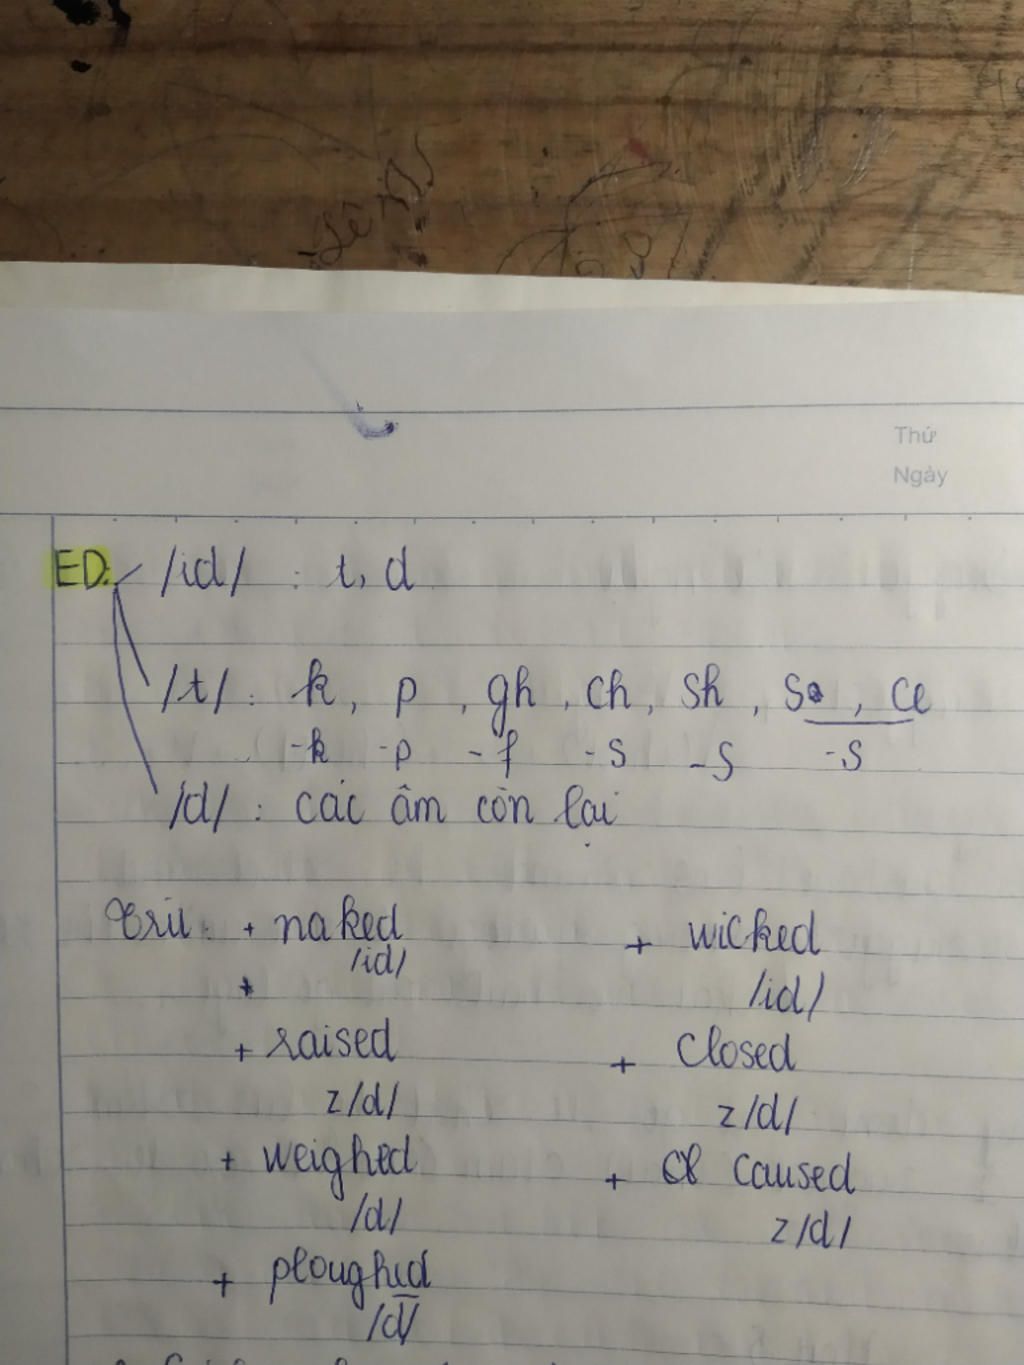 Thứ
Ngày
ED: /id/ : t, d
/t/ : k, p, gh, ch, sh, s, ce
-k -p -f -s -s -s
/d/ : các âm còn lại
Trừ: + naked + wicked
/id/ /id/
+
+ raised + closed
z/d/ z/d/
+ weighed + caused
/d/ z/d/
+ ploughed
/d/